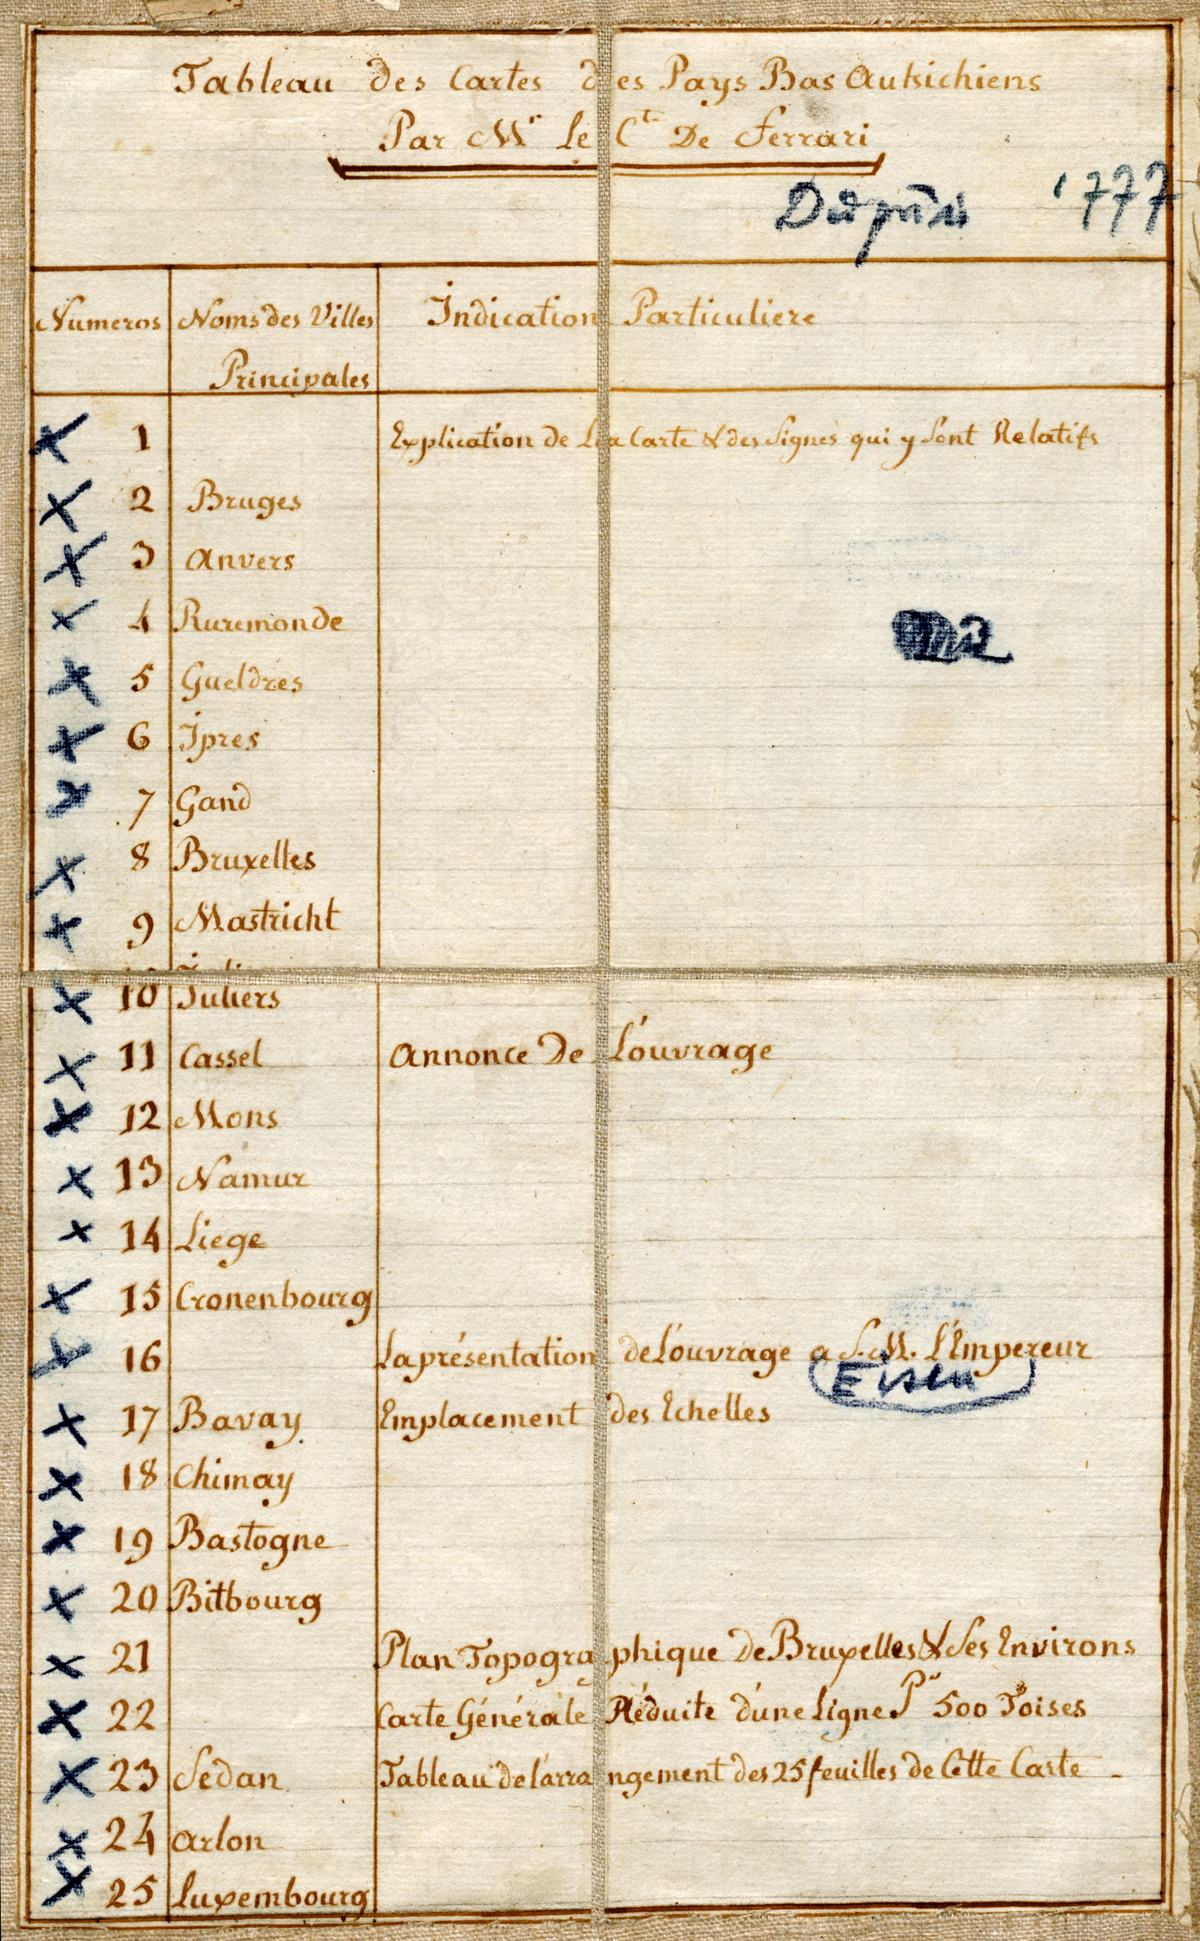 Tableau des Cartes des Pays Bas Autrichiens
Par Mr Le Ct De Ferrari
1777
Numeros Noms des Villes Principales Indication Particuliere
1 Explication de La Carte & des Signes qui y Sont Relatifs
2 Bruges
3 Anvers
4 Ruremonde
5 Gueldres
6 Ipres
7 Gand
8 Bruxelles
9 Mastricht
10 Juliers
11 Cassel Annonce De L'ouvrage
12 Mons
13 Namur
14 Liege
15 Cronenbourg
16 La présentation de L'ouvrage a S.M. L'Empereur
Eisen
17 Bavay Emplacement des Echelles
18 Chimay
19 Bastogne
20 Bitbourg
21 Plan Topographique de Bruxelles & Ses Environs
22 Carte Générale Réduite d'une Ligne Pr 500 Toises
23 Sedan Tableau de l'arrangement des 25 feuilles de Cette Carte
24 Arlon
25 Luxembourg